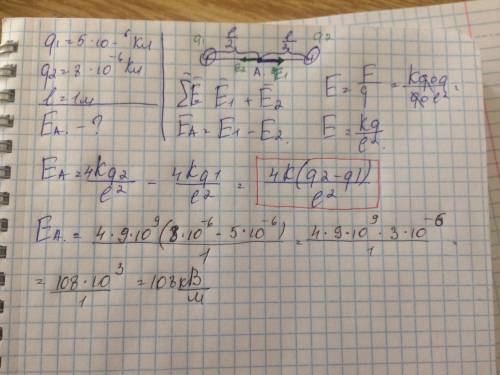 q₁ = 5·10⁻⁶ Кл
q₂ = 8·10⁻⁶ Кл
l = 1м
E_A. - ?
q₁ l/2 l/2 q₂
E₂ A. E₁
∑E̅ E̅₁ + E̅₂
E_A = E₁ - E₂.
E = F/q = kq₀q/q₀l².
E = kq/l².
E_A = 4kq₂/l² - 4kq₁/l² = 4k(q₂-q₁)/l²
E_A. = 4·9·10⁹(8·10⁻⁶ - 5·10⁻⁶)/1 = 4·9·10⁹·3·10⁻⁶/1.
= 108·10³/1 = 108кВ/м